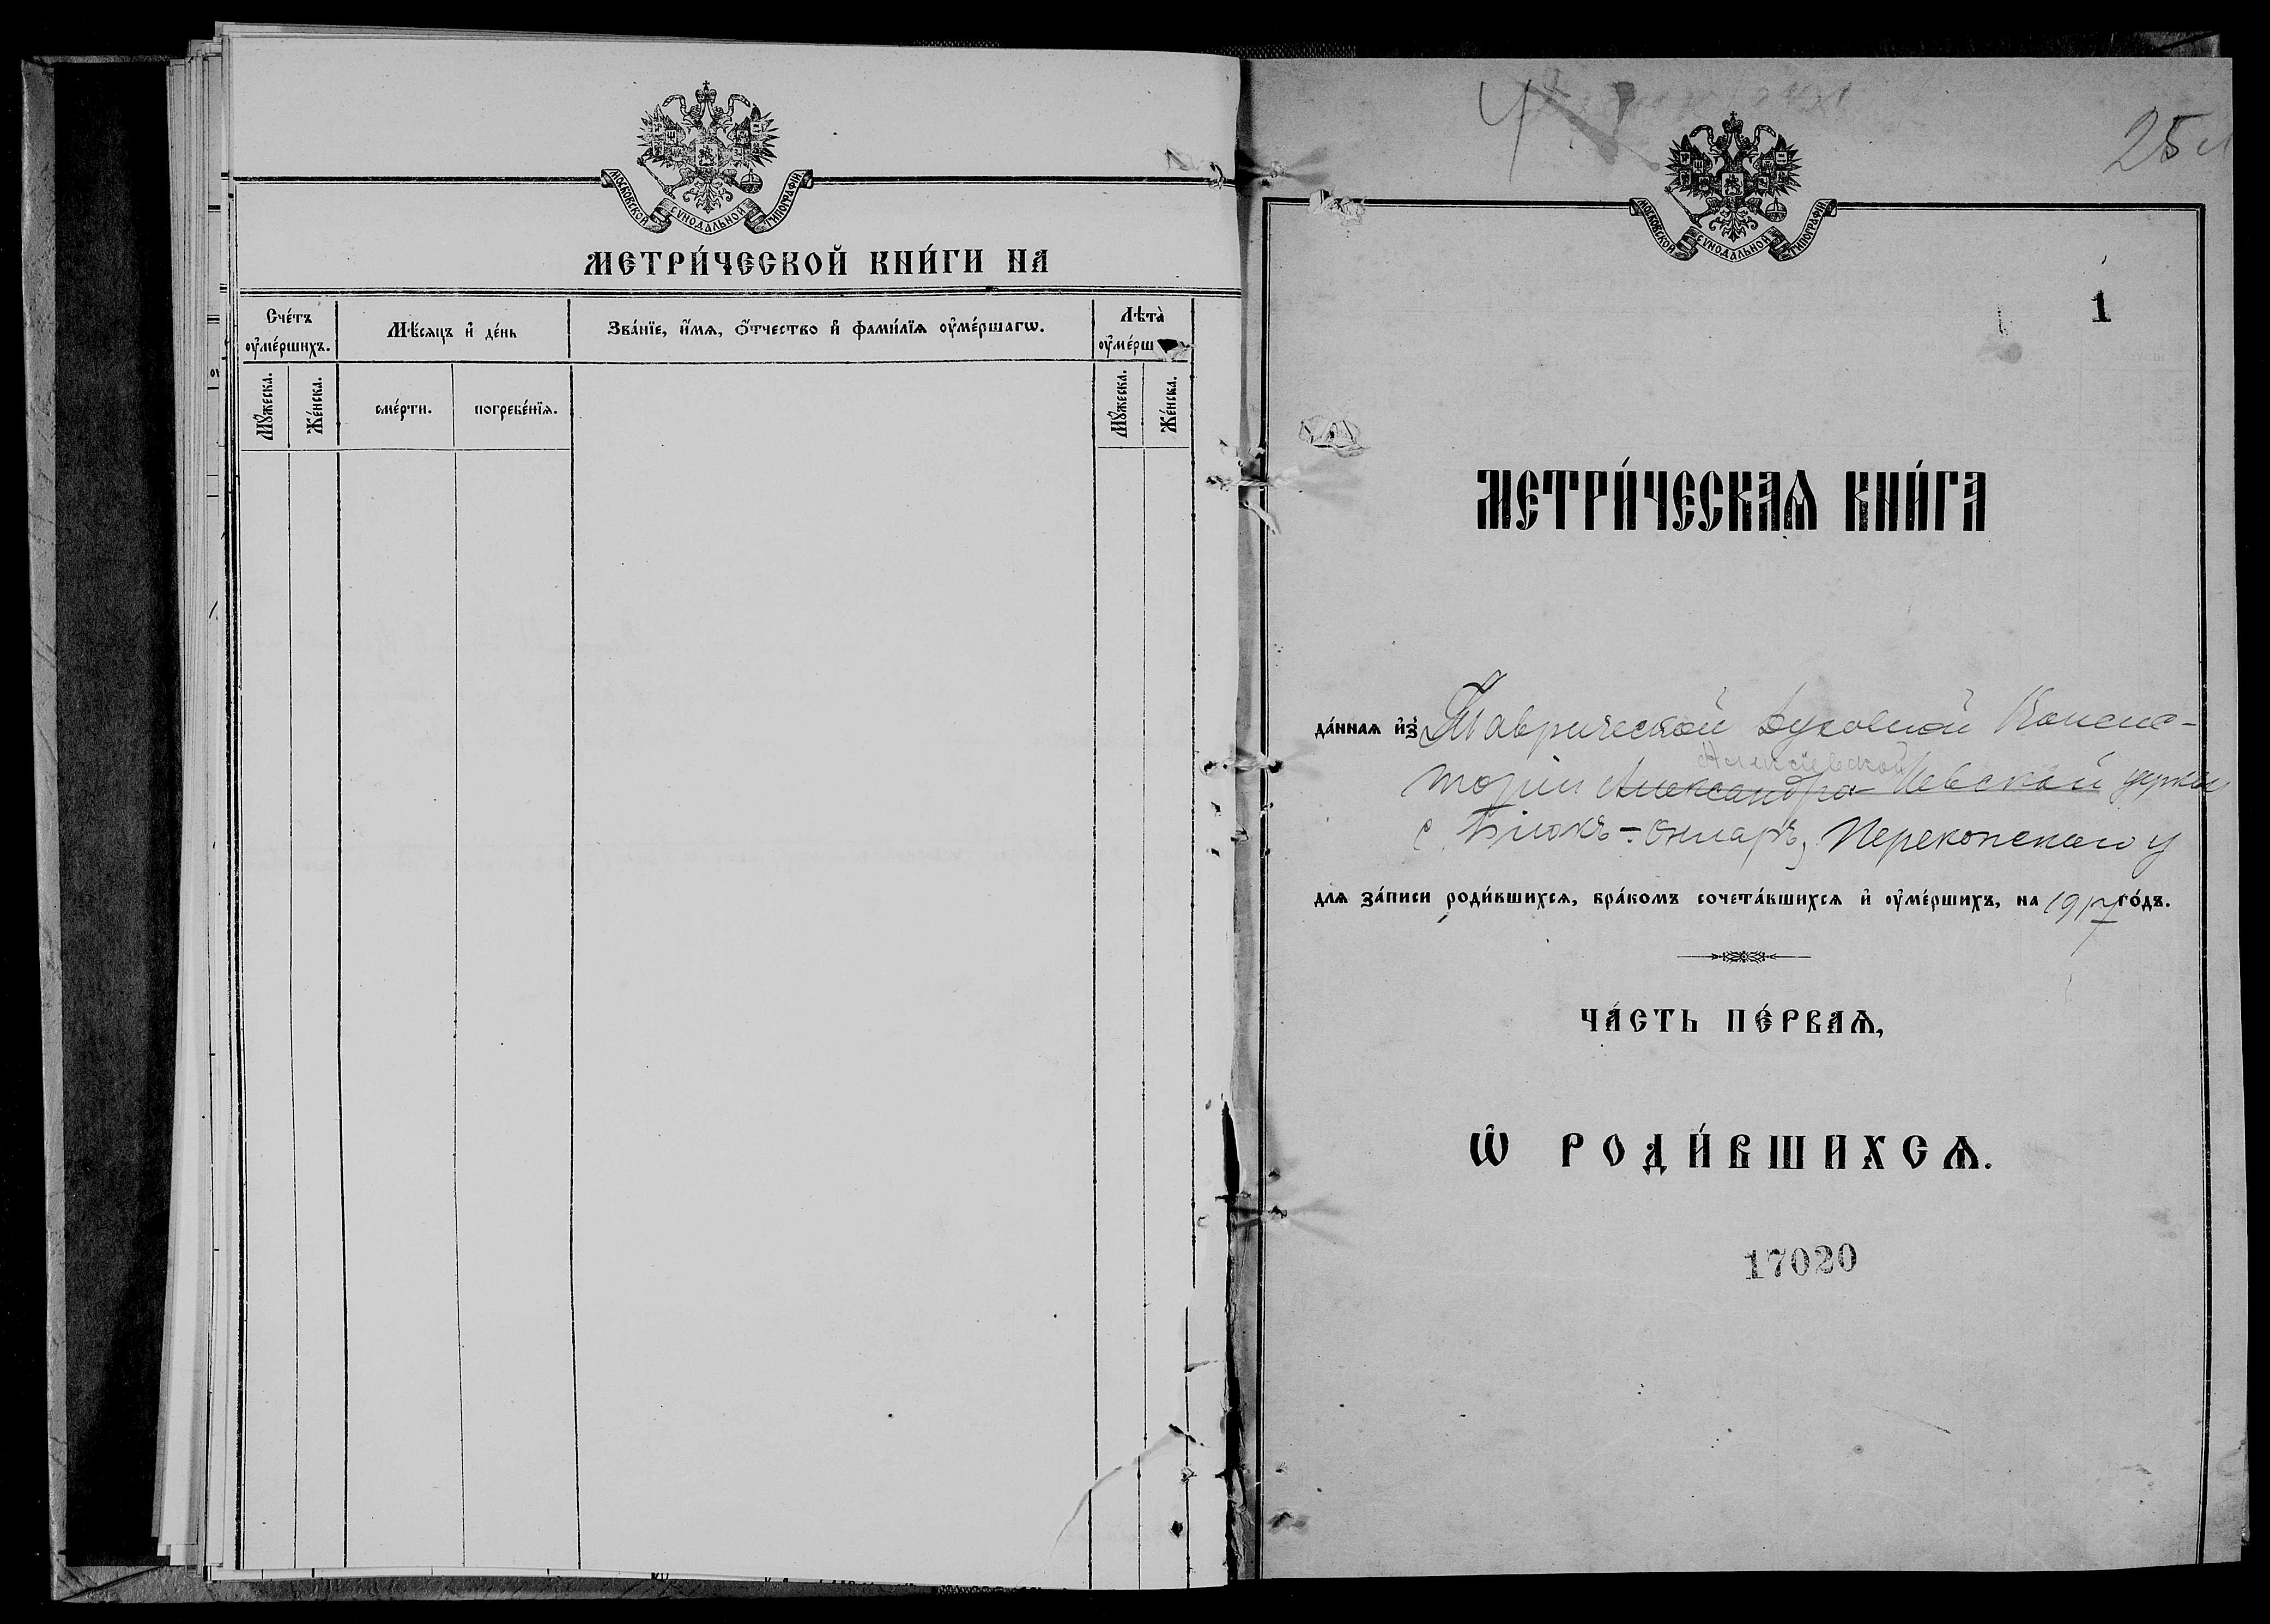 МОСКОВСКОЙ СѴНОДАЛЬНОЙ ТИПОГРАФІИ
МЕТРИ́ЧЕСКОЙ КНИ́ГИ НА
Сче́тъ оу҆ме́ршихъ.
Мѣ́сяцъ и҆ де́нь
Зва́нїе, и҆́мя, о҆́тчество и҆ фами́лїя оу҆ме́ршагѡ.
Лѣта̀ оу҆ме́рш
Мꙋ́жеска.
Же́нска.
сме́рти.
погребе́нїя.
Мꙋ́жеска.
Же́нска.
25
МОСКОВСКОЙ СѴНОДАЛЬНОЙ ТИПОГРАФІИ
1
МЕТРИ́ЧЕСКАѦ КНИ́ГА
да́ннаѧ и҆з̾ Таврической Духовной Консис-
Алексіевской
торіи Александро-Невской церкви
с. Біюкъ-Онларъ, Перекопскаго у
длѧ за́писи роди́вшихсѧ, бра́комъ сочета́вшихсѧ и҆ оу҆ме́ршихъ, на 1917 го́дъ.
ЧА́СТЬ ПЕ́РВАѦ,
Ѽ РОДИ́ВШИХСѦ.
17020